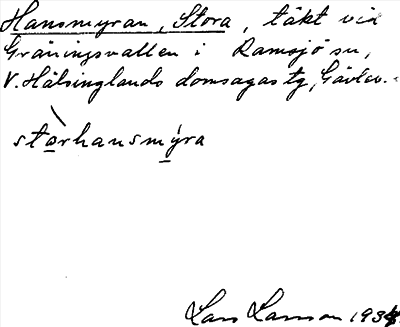 Hansmyran, Stora, täkt vid
Gräningsvallen i Ramsjö sn,
V. Hälsinglands domsagas tg, Gävleb.
stòrhansmýra
Lars Larsson 1934